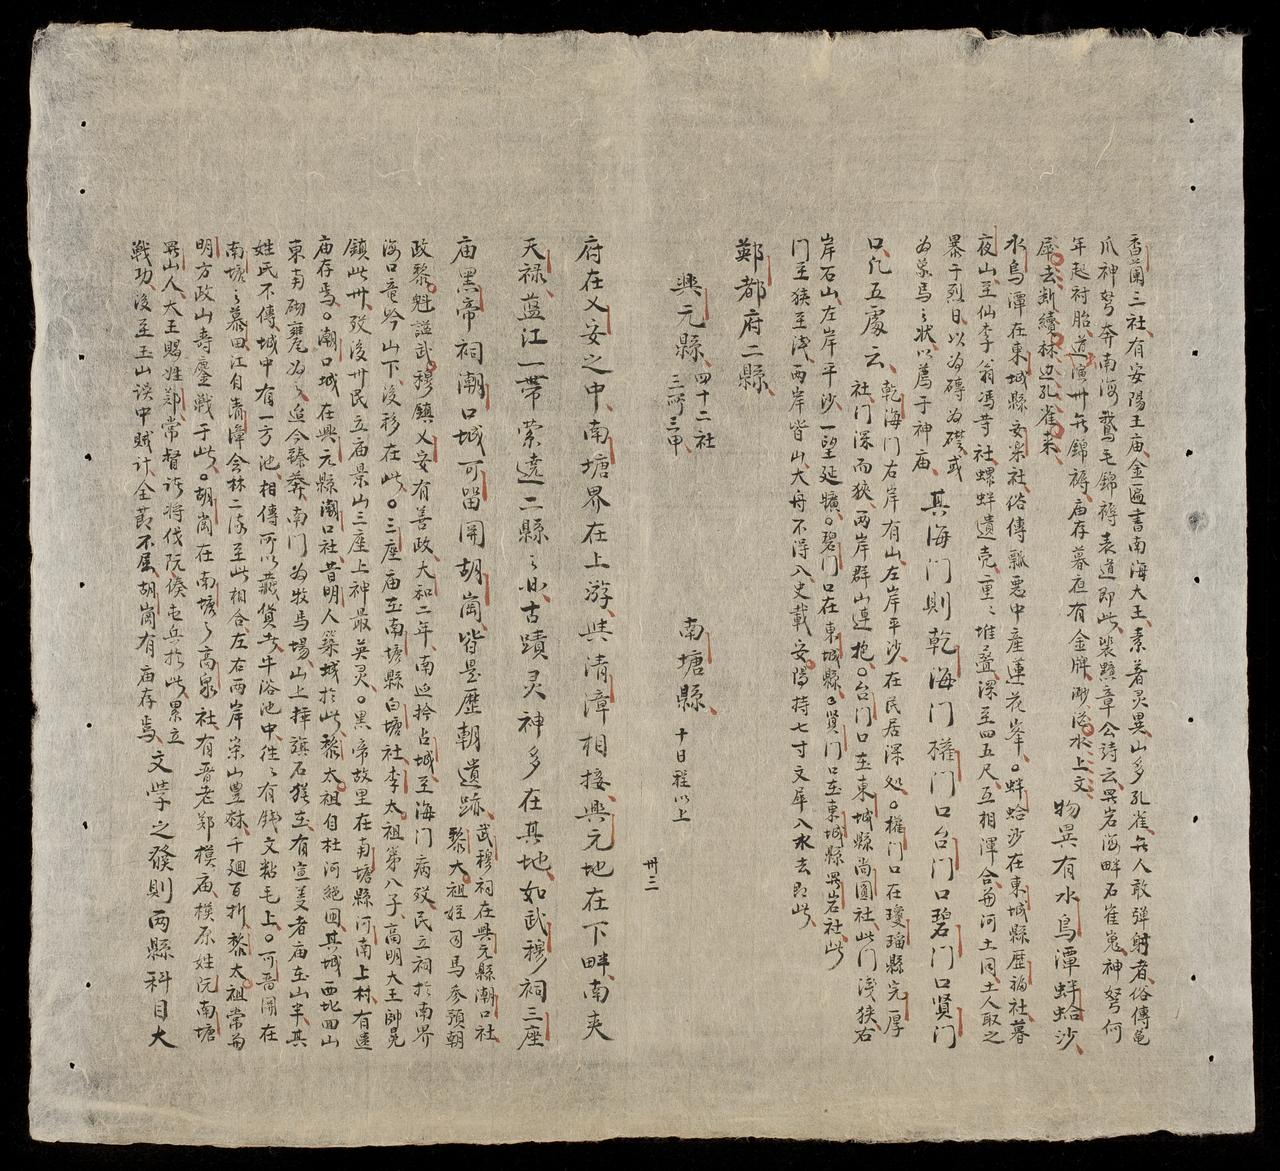 香蘭三社有安陽王庙金匾書南海大王素著灵異山多孔雀無人敢弹射者俗傳亀
爪神弩奔南海鵞毛錦褥表道即此裴黙章公詩云畀岩海畔石崔嵬神弩何
年起衬胎道演卅無錦褥庙存暮夜有金牌渺茫水上文
犀去断續林边孔雀来
物異有水鳥潭蚌蛤沙
水鳥潭在東城縣安楽社俗傳瓢悪中産蓮花峯蚌蛤沙在東城縣歴福社暮
夜山至仙李翁馮䓁社螺蚌遺壳重〻堆叠深至四五尺互相渾合㒵河土同土人取之
暴于烈日以為磚為礎或
為象馬之状以薦于神庙
其海门則乾海门權门口台门口碧门口賢门
口凢五處云
乾海门右岸有山左岸平沙在民居深処權门口在瓊瑠縣完厚
社门深而狹两岸群山連抱台门口在東城縣尚圓社此门淺狹右
岸石山左岸平沙一望延曠碧门口在東城縣賢门口在東城縣畀岩社此
门至狹至淺两岸皆山大舟不得入史載安陽持七寸文犀入水去即此
鄚都府二縣
興元縣
四十二社
三所三甲
南塘縣
十日程以上
卅三
府在乂安之中南塘界在上游與清漳相接興元地在下畔南夹
天禄蓝江一帶萦遶二縣之北古蹟灵神多在其地如武穆祠三座
庙黑帝祠潮口城可畱開胡崗皆是歴朝遺跡
武穆祠在興元縣潮口社
黎大祖姪司馬参預朝
政黎魁諡武穆鎮乂安有善政大和二年南廵拎占城至海门病歿民立祠於南界
海口竜吟山下後移在此三座庙在南塘縣白塘社李太祖第八子高明大王帥兄
鎮此卅歿後卅民立庙景山三座上神最英灵黑帝故里在南塘縣河南上村有遺
庙存焉潮口城在興元縣潮口社昔明人築城於此黎太祖自杜河絶囬其城西北囬山
東南砌甕為之迨今臻莽南门為牧馬場山上揷旗石猶在有宣姜者庙在山半其
姓氏不傳城中有一方池相傳可以藏貨㫖牛浴池中徃〻有銭文粘毛上可畱開在
南塘之慕田江自清漳会林二𣳔至此相合左右两岸崇山豊林千廻百折黎太祖常㒵
明方政山壽鏖戦于此胡崗在南塘之高泉社有晋老鄚模庙模原姓阮南塘
畀山人大王賜姓鄚常督諸将伐阮倐屯兵於此累立
戦功後至玉山误中賊计全莭不屈胡崗有庙存焉
文学之發則两縣科目大